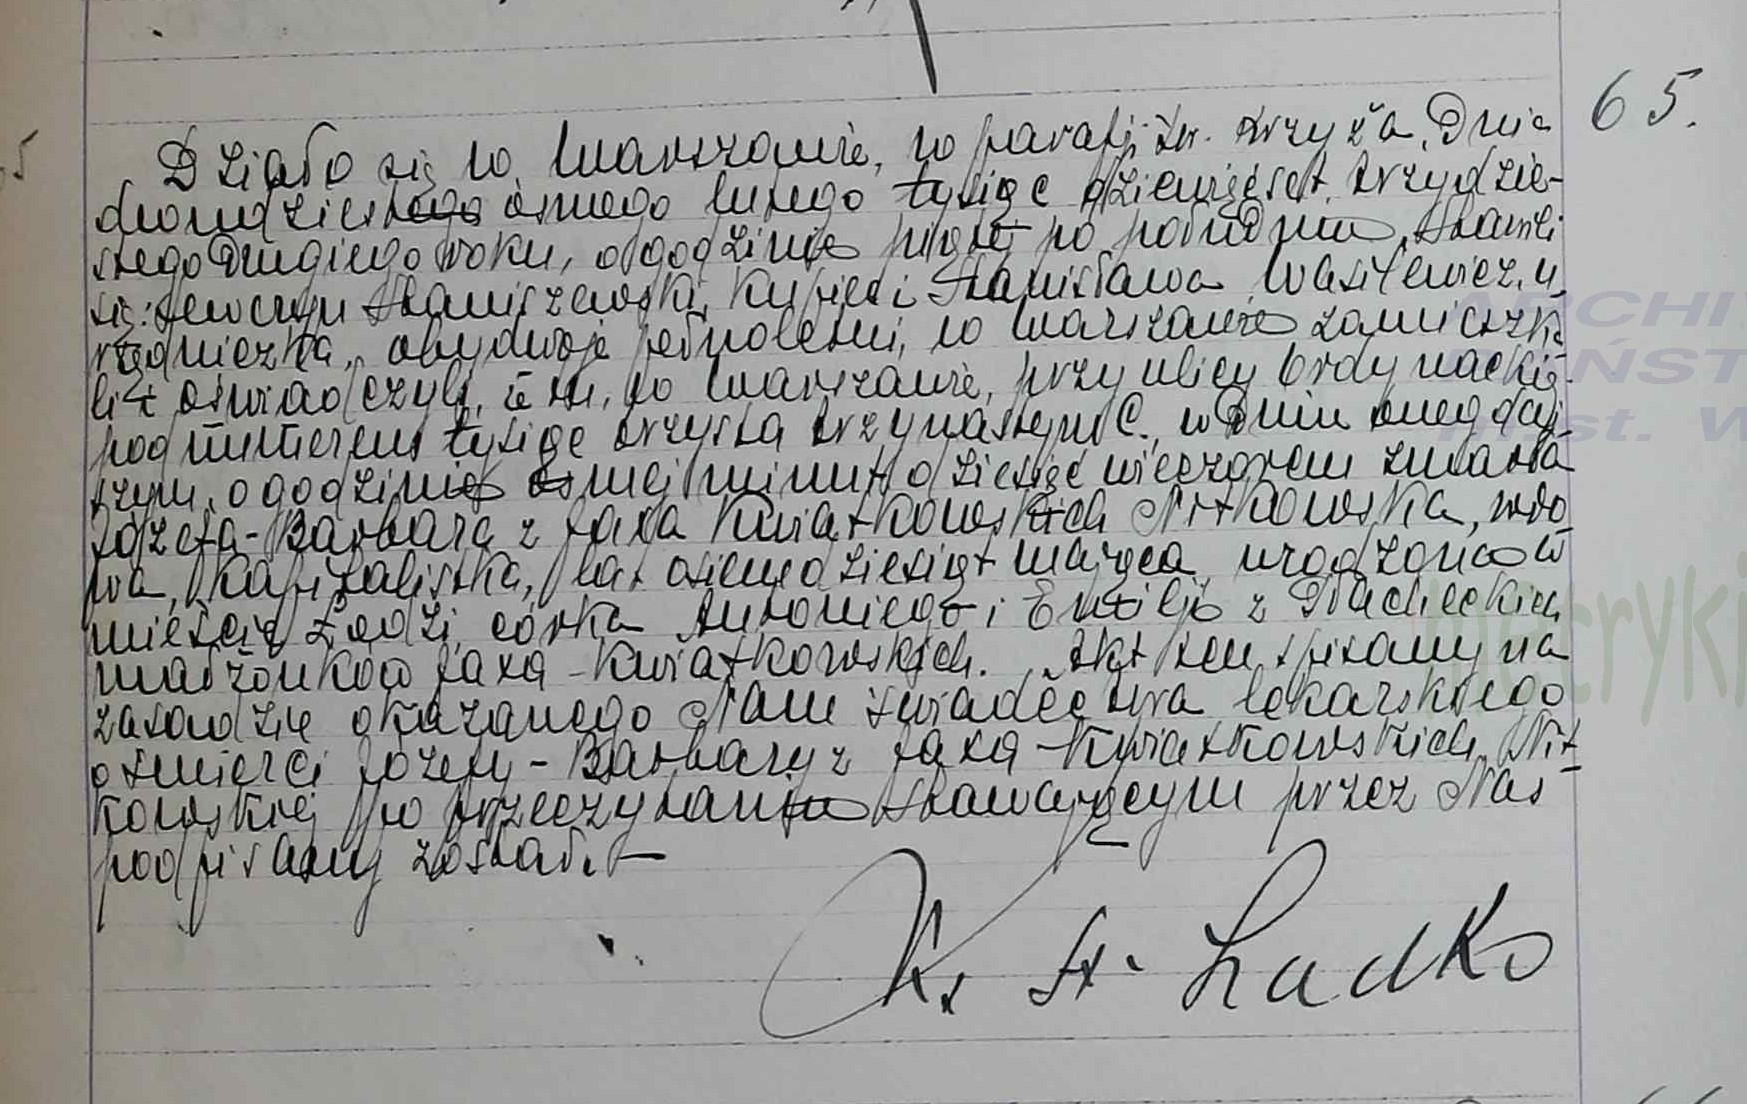 65.
Działo się w Warszawie, w parafji Św. Krzyża, Dnia
dwudziestego ósmego lutego tysiąc dziewięćset trzydzie-
stego Drugiego roku, o godzinie piątej po południu. Stawili
się: Seweryn Staniszewski, kupiec i Stanisława Wasilewicz, u
rzędniczka, obydwoje pełnoletni, w Warszawie zamieszka
li i oświadczyli, iż tu, w Warszawie, przy ulicy Ordynackiej
pod numerem tysiąc trzysta trzynastym C., w Dniu onegdaj
szym, o godzinie ósmej minut dziesięć wieczorem zmarła
Józefa-Barbara z Jaxa Kwiatkowskich Nitkowska, wdo
wa, kapitalistka, lat osiemdziesiąt mająca urodzona w
mieście Łodzi, córka Antoniego i Emilji z
małżonków Jaxa-Kwiatkowskich. Akt ten spisany na
zasadzie okazanego Nam świadectwa lekarskiego
o śmierci Józefy-Barbary z Jaxa-Kwiatkowskich Nit
kowskiej po przeczytaniu stawającym przez Nas
podpisany został.—
Ks. St. Ladko
ARCHI
PAŃST
m.st. W
metryki